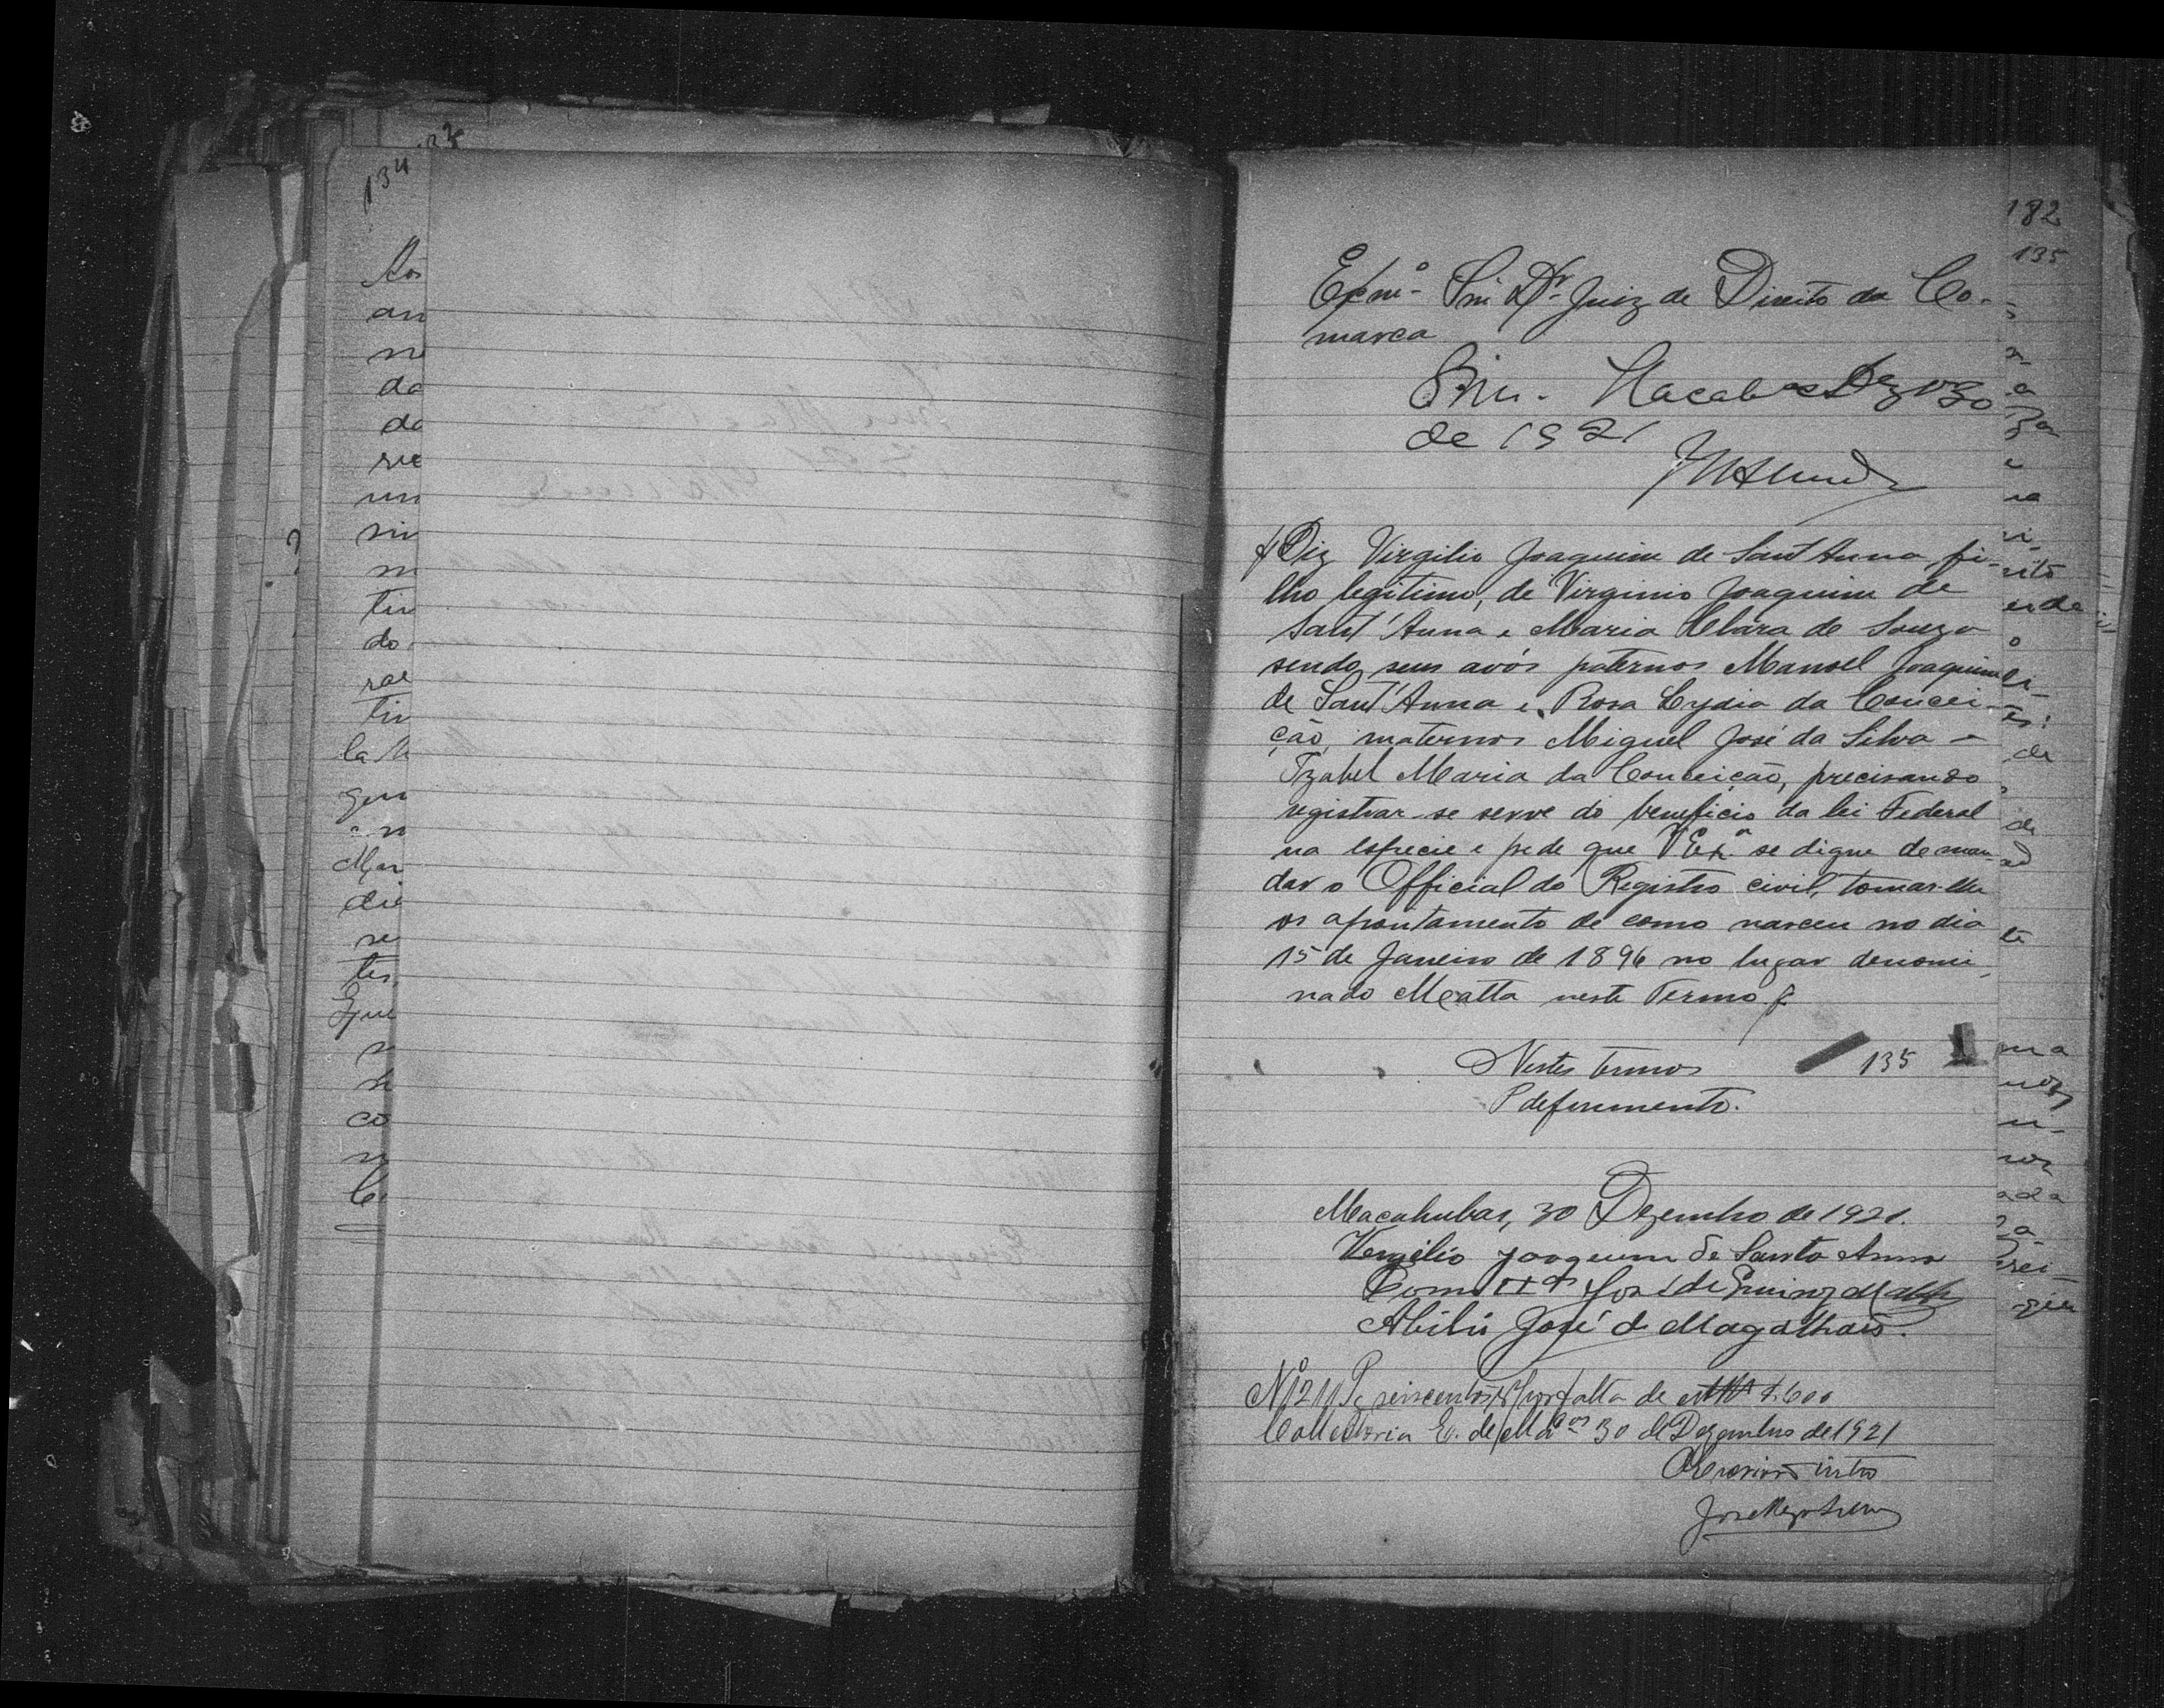 134
182
135
Exmº Snr Dr. Juiz de Direito da Co-
marca
Sim. Macahubas Dezbro 30
de 1921
Diz Virgilio Joaquim de Sant'Anna, fi-
lho legitimo, de Virginio Joaquim de
Sant'Anna e Maria Clara de Souza
sendo seus avós paternos Manoel Joaquim
de Sant'Anna e Rosa Lydia da Concei-
ção, maternos Miguel José da Silva e
Izabel Maria da Conceição, precisando
registrar-se serve do beneficio da lei Federal
na especie e pede que V Exª se digne de man-
dar o Official do Registro civil, tomar-lhe
os apontamento de como nasceu no dia
15 de Janeiro de 1896 no lugar denomi-
nado Matta neste Termo.
Nestes termos
135
P deferimento.
Macahubas, 30 Dezembro de 1921.
Vergilio Joaquim de Santo Anna
Como
Abilio José de Magalhães.
Nº 211 Pg seiscentos rs por falta de 600
Collectoria E. de 30 de Dezembro de 1921